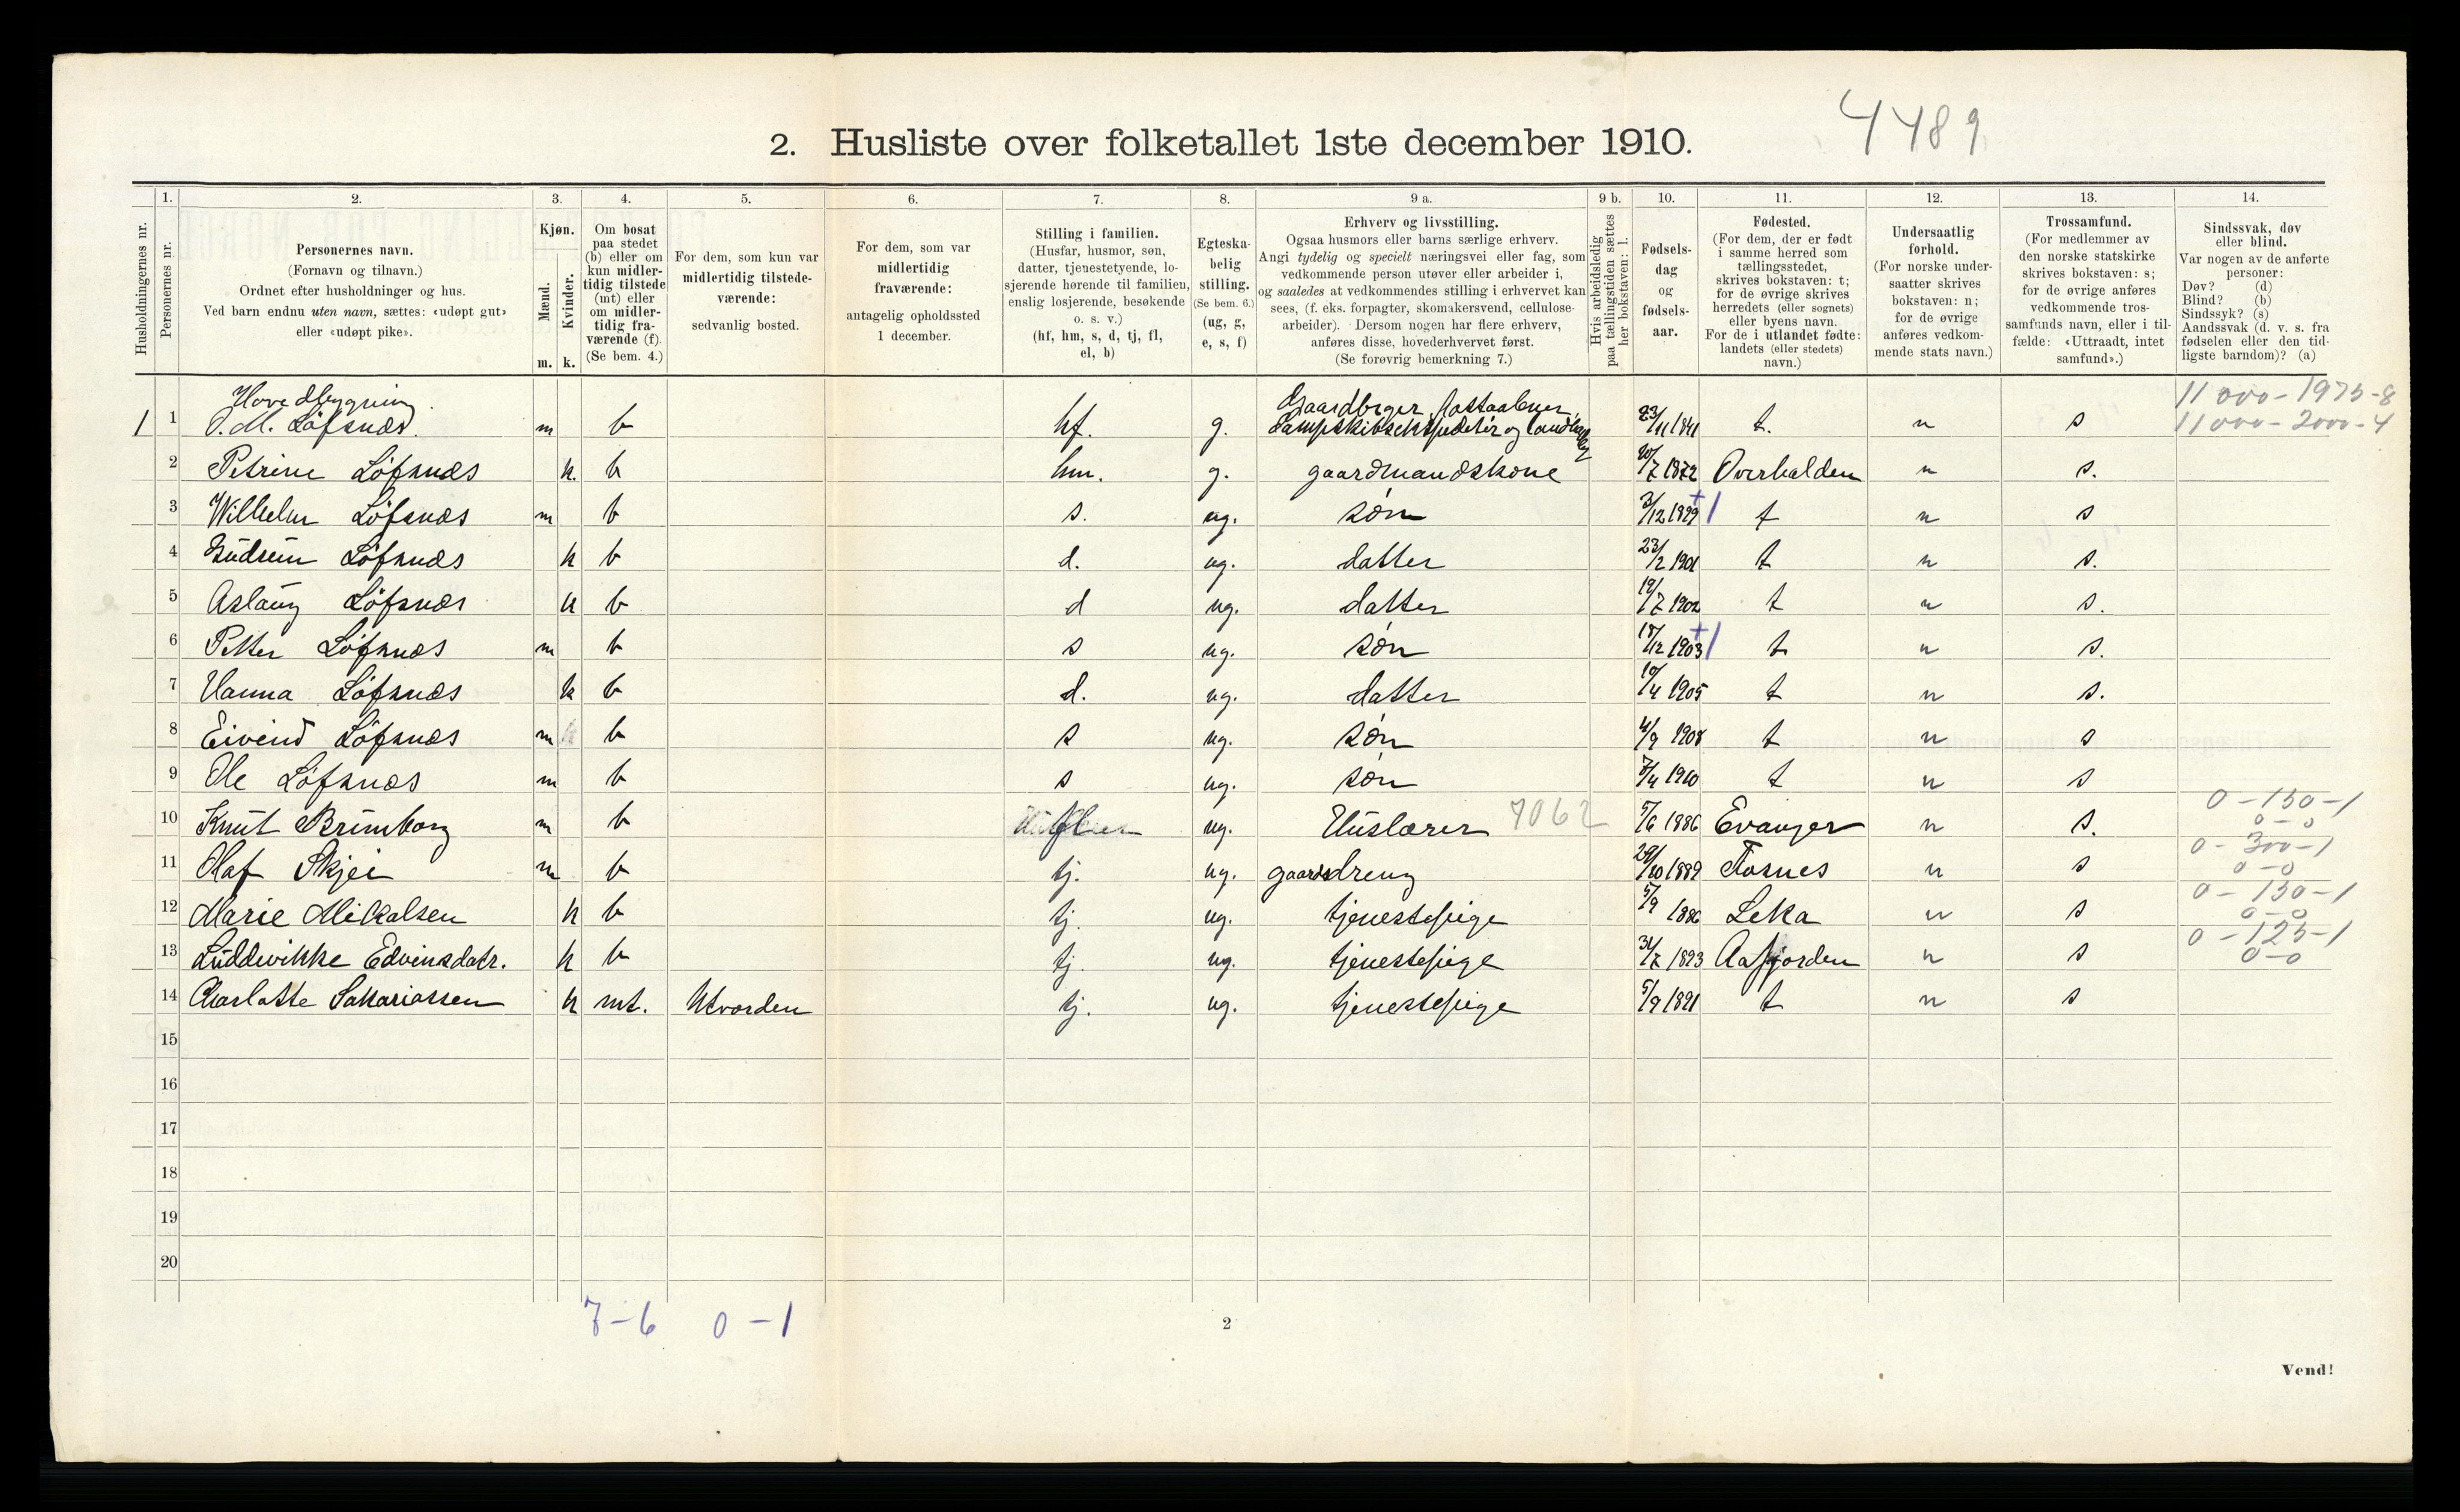 4489
2. Husliste over folketallet 1ste december 1910.
1. 2. 3. 4. 5. 6. 7. 8. 9 a. 9 b. 10. 11. 12. 13. 14.
Husholdningernes nr.
Personernes nr.
Personernes navn.
(Fornavn og tilnavn.)
Ordnet efter husholdninger og hus.
Ved barn endnu uten navn, sættes: «udøpt gut»
eller «udøpt pike».
Kjøn.
Mænd.
Kvinder.
m. k.
Om bosat
paa stedet
(b) eller om
kun midler-
tidig tilstede
(mt) eller
om midler-
tidig fra-
værende (f).
(Se bem. 4.)
For dem, som kun var
midlertidig tilstede-
værende:
sedvanlig bosted.
For dem, som var
midlertidig
fraværende:
antagelig opholdssted
1 december.
Stilling i familien.
(Husfar, husmor, søn,
datter, tjenestetyende, lo-
sjerende hørende til familien,
enslig losjerende, besøkende
o. s. v.)
(hf, hm, s, d, tj, fl,
el, b)
Egteska-
belig
stilling.
(Se bem. 6.)
(ug, g,
e, s, f)
Erhverv og livsstilling.
Ogsaa husmors eller barns særlige erhverv.
Angi tydelig og specielt næringsvei eller fag, som
vedkommende person utøver eller arbeider i,
og saaledes at vedkommendes stilling i erhvervet kan
sees, (f. eks. forpagter, skomakersvend, cellulose-
arbeider). Dersom nogen har flere erhverv,
anføres disse, hovederhvervet først.
(Se forøvrig bemerkning 7.)
Hvis arbeidsledig
paa tællingstiden sættes
her bokstaven: l.
Fødsels-
dag
og
fødsels-
aar.
Fødested.
(For dem, der er født
i samme herred som
tællingsstedet,
skrives bokstaven: t;
for de øvrige skrives
herredets (eller sognets)
eller byens navn.
For de i utlandet fødte:
landets (eller stedets)
navn.)
Undersaatlig
forhold.
(For norske under-
saatter skrives
bokstaven: n;
for de øvrige
anføres vedkom-
mende stats navn.)
Trossamfund.
(For medlemmer av
den norske statskirke
skrives bokstaven: s;
for de øvrige anføres
vedkommende tros-
samfunds navn, eller i til-
fælde: «Uttraadt, intet
samfund».)
Sindssvak, døv
eller blind.
Var nogen av de anførte
personer:
Døv? (d)
Blind? (b)
Sindssyk? (s)
Aandssvak (d. v. s. fra
fødselen eller den tid-
ligste barndom)? (a)
Hovedbygning Gaardbruger, Postaabner, 11000-1975-8
1 1 O. M. Löfsnæs. m b hf. g. Dampskibsekspeditør og landhandler 23/11 1841 t. n s 11000-2000-4
2 Petrine Löfsnæs k. b hm. g. gaardmandskone 20/7 1872 Overhalden n s.
3 Wilhelm Löfsnæs m b s. ug. søn 3/12 1899 + / t n s
4 Gudrun Löfsnæs k b d. ug. datter 23/2 1901 t n s.
5 Aslaug Löfsnæs k b d ug. datter 19/7 1902 t n s.
6 Petter Löfsnæs m b s ug. søn 18/12 1903 + / t. n s.
7 Hanna Löfsnæs k b d. ug. datter 10/4 1905 t n s.
8 Eivind Löfsnæs m b s ug. søn 4/9 1908 t n s
9 Ole Löfsnæs m b s ug. søn 7/4 1910 t n s
10 Knut Brimborg m b fl ug. Huslærer 7062 5/6 1886 Evanger n s. 0-150-1
0-0
11 Olaf Skjei m b tj. ug. gaardsdreng 29/10 1889 Fosnes n s 0-300-1
0-0
12 Marie Mikalsen k b tj. ug. tjenestepige 5/9 1886 Leka n s 0-150-1
0-0
13 Luddvikke Edvinsdatr. k b tj. ug. tjenestepige 31/7 1893 Aafjorden n s 0-125-1
0-0
14 Charlotte Sakariassen k mt. Utvorden tj. ug. tjenestepige 5/9 1891 t n s
15
16
17
18
19
20
7-6 0-1
2
Vend!